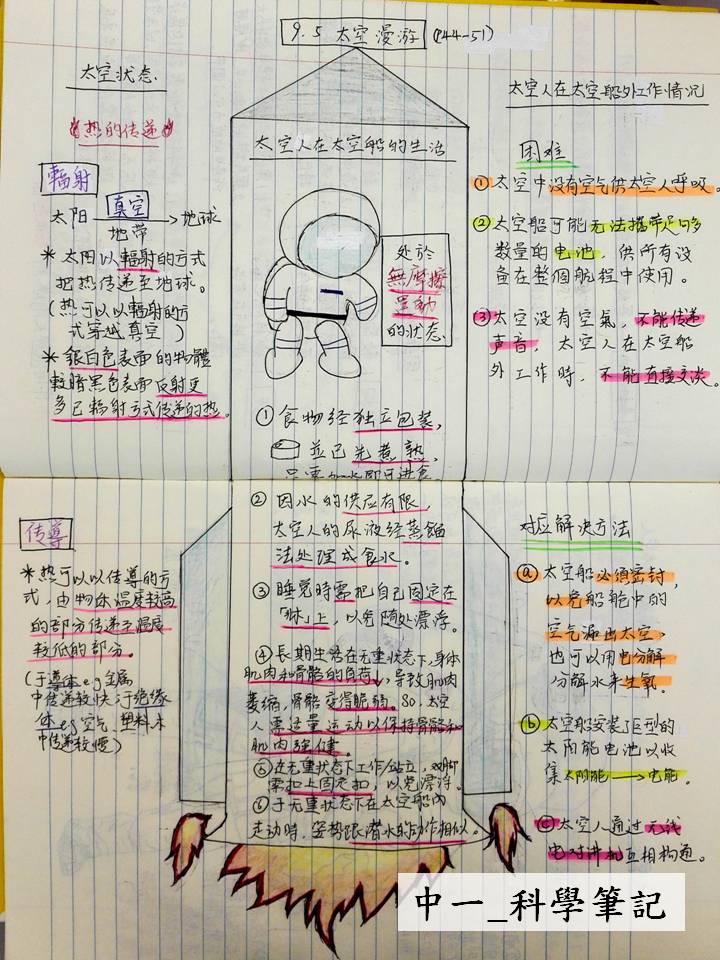 9.5 太空漫游 (P44-51)
太空状态
热的传递
輻射
太阳 真空 地带 → 地球
* 太阳以輻射的方式
把热传递至地球。
(热可以以輻射的方
式穿越真空)
* 銀白色表面的物體
較暗黑色表面反射更
多已輻射方式传递的热。
传导
* 热可以以传導的方
式,由物体温度較高
的部分传递至温度
較低的部分。
(于導体eg金屬
中传递較快,于绝缘
体eg空气、塑料、木
中传递較慢)
太空人在太空船的生活
处於
無摩擦
運动
的状态
① 食物经独立包装,
並已先煮熟,
只需加水即可進食
② 因水的供应有限,
太空人的尿液经蒸餾
法处理成食水。
③ 睡觉時需把自己固定在
「床」上,以免随处漂浮。
④ 長期生活在无重状态下,身体
肌肉和骨骼的負荷↓,导致肌肉
萎缩,骨骼变得脆弱。So,太空
人需适量运动以保持骨骼和
肌肉强健。
⑤ 在无重状态下工作/站立,双脚
需扣上固定扣,以免漂浮。
⑥ 于无重状态下在太空船內
走动時,姿势跟潜水的动作相似。
太空人在太空船外工作情况
困难
① 太空中没有空气供太空人呼吸。
② 太空船可能无法攜带足夠
数量的电池,供所有设
备在整個航程中使用。
③ 太空没有空氣,不能传递
声音,太空人在太空船
外工作時,不能直接交谈。
对应解决方法
ⓐ 太空船必须密封,
以免船舱中的
空气漏出太空,
也可以用电分解
分解水来生氧。
ⓑ 太空船安装了巨型的
太阳能电池以收
集太阳能→电能。
ⓒ 太空人通过无线
电对讲机互相沟通。
中一_科學筆記